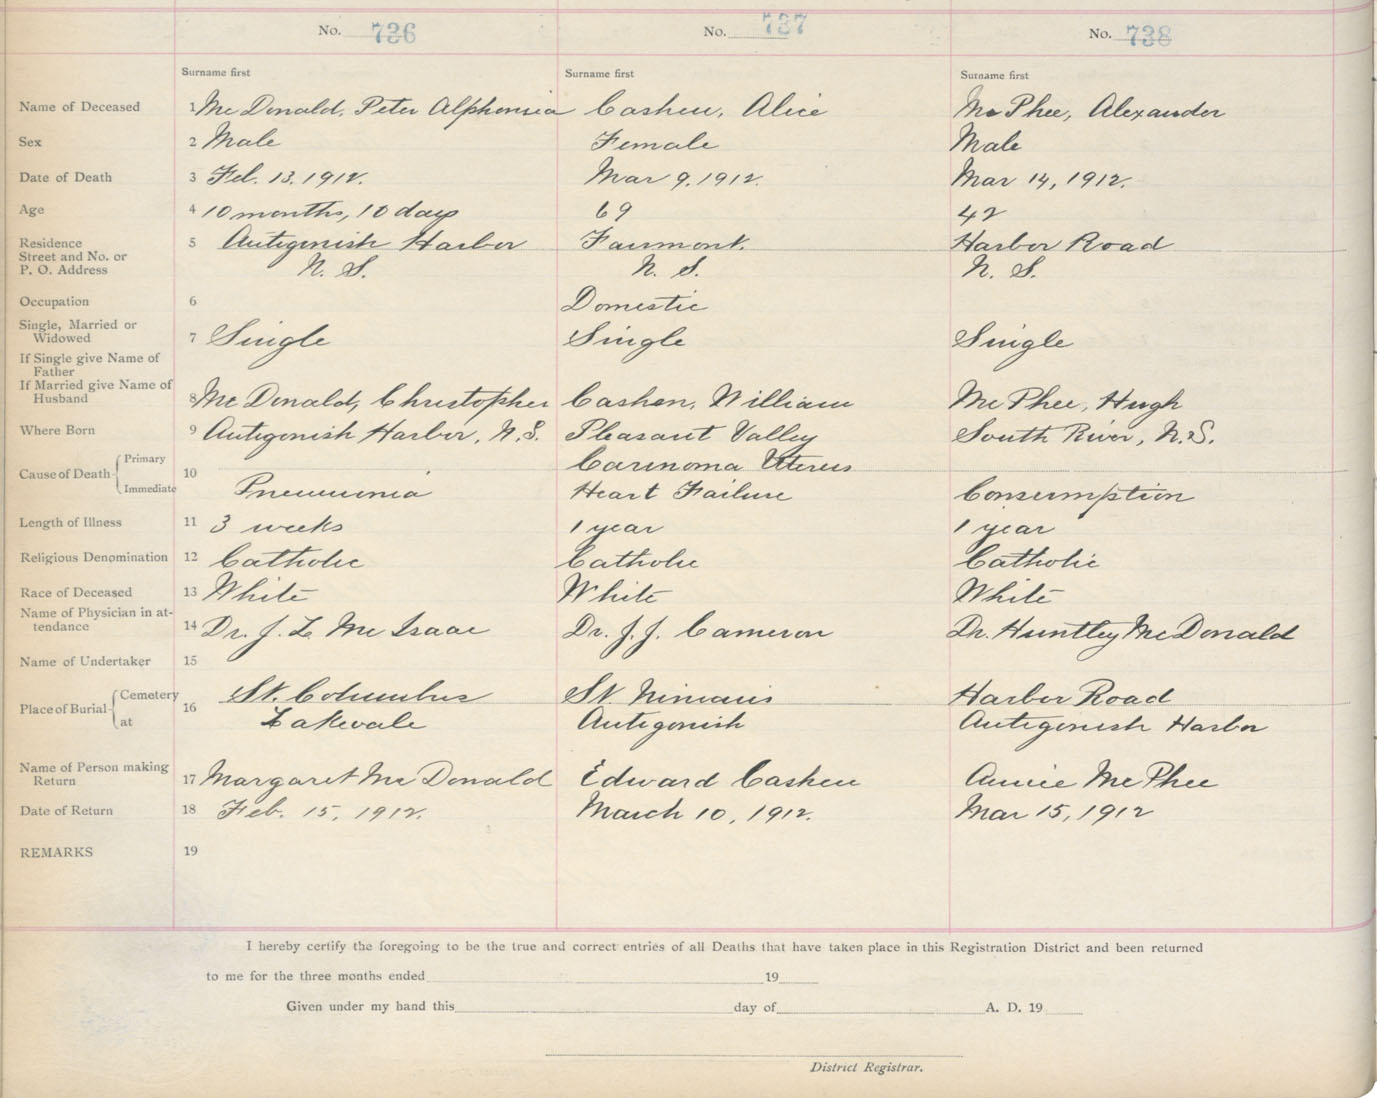 No. 736 No. 737 No. 738
Surname first Surname first Surname first
Name of Deceased 1 Mc Donald, Peter Alphonsia Cashen, Alice Mc Phee, Alexander
Sex 2 Male Female Male
Date of Death 3 Feb. 13, 1912. Mar 9, 1912. Mar 14, 1912.
Age 4 10 months, 10 days 69 42
Residence 5 Antigonish Harbor Fairmont. Harbor Road
Street and No. or
P. O. Address N. S. N. S. N. S.
Occupation 6 Domestic
Single, Married or
Widowed 7 Single Single Single
If Single give Name of
Father
If Married give Name of
Husband 8 Mc Donald, Christopher Cashen, William Mc Phee, Hugh
Where Born 9 Antigonish Harbor, N.S. Pleasant Valley South River, N.S.
Cause of Death Primary 10 Carinoma Uterus
Immediate Pneumonia Heart Failure Consumption
Length of Illness 11 3 weeks 1 year 1 year
Religious Denomination 12 Catholic Catholic Catholic
Race of Deceased 13 White White White
Name of Physician in at-
tendance 14 Dr. J. L. Mc Isaac Dr. J. J. Cameron Dr. Huntley McDonald
Name of Undertaker 15
Place of Burial Cemetery 16 St. Columbus St Ninians Harbor Road
at Lakevale Antigonish Antigonish Harbor
Name of Person making
Return 17 Margaret Mc Donald Edward Cashen Annie Mc Phee
Date of Return 18 Feb. 15, 1912. March 10, 1912. Mar 15, 1912
REMARKS 19
I hereby certify the foregoing to be the true and correct entries of all Deaths that have taken place in this Registration District and been returned
to me for the three months ended 19
Given under my hand this day of A. D. 19
District Registrar.